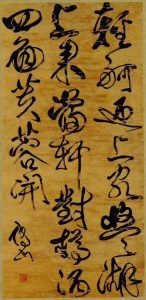 輕舸迎上客悠々湖
上來當軒對樽酒
四面芙蓉開
傅山